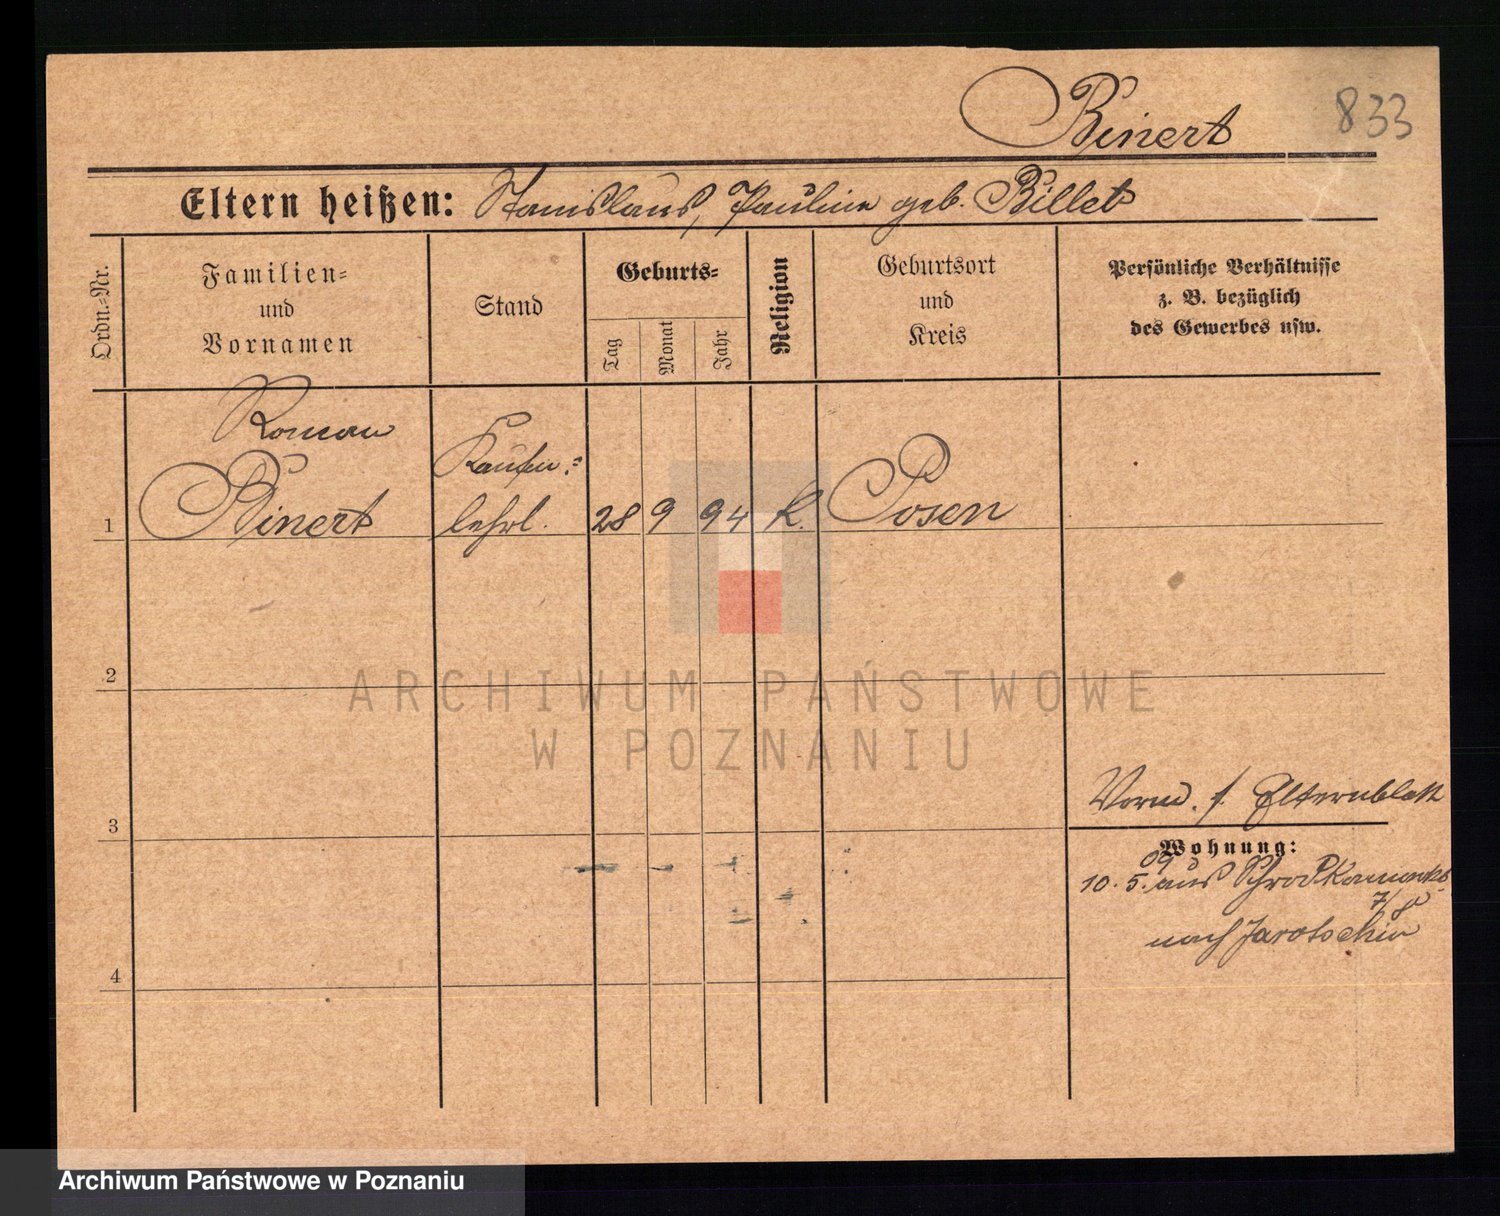 Binert
833
Eltern heißen: Stanislaus, Pauline geb. Billet
Ordn.-Nr.
Familien-
und
Vornamen
Stand
Geburts-
Tag
Monat
Jahr
Religion
Geburtsort
und
Kreis
Persönliche Verhältnisse
z. B. bezüglich
des Gewerbes usw.
Roman
Binert
Kaufm.-
lehrl.
1
28
9
94
k.
Posen
2
ARCHIWUM PAŃSTWOWE
W POZNANIU
3
Vorm. s. Elternblatt
Wohnung:
09
10. 5. aus Schrodkamarkt
7/8
nach Jarotschin
4
Archiwum Państwowe w Poznaniu